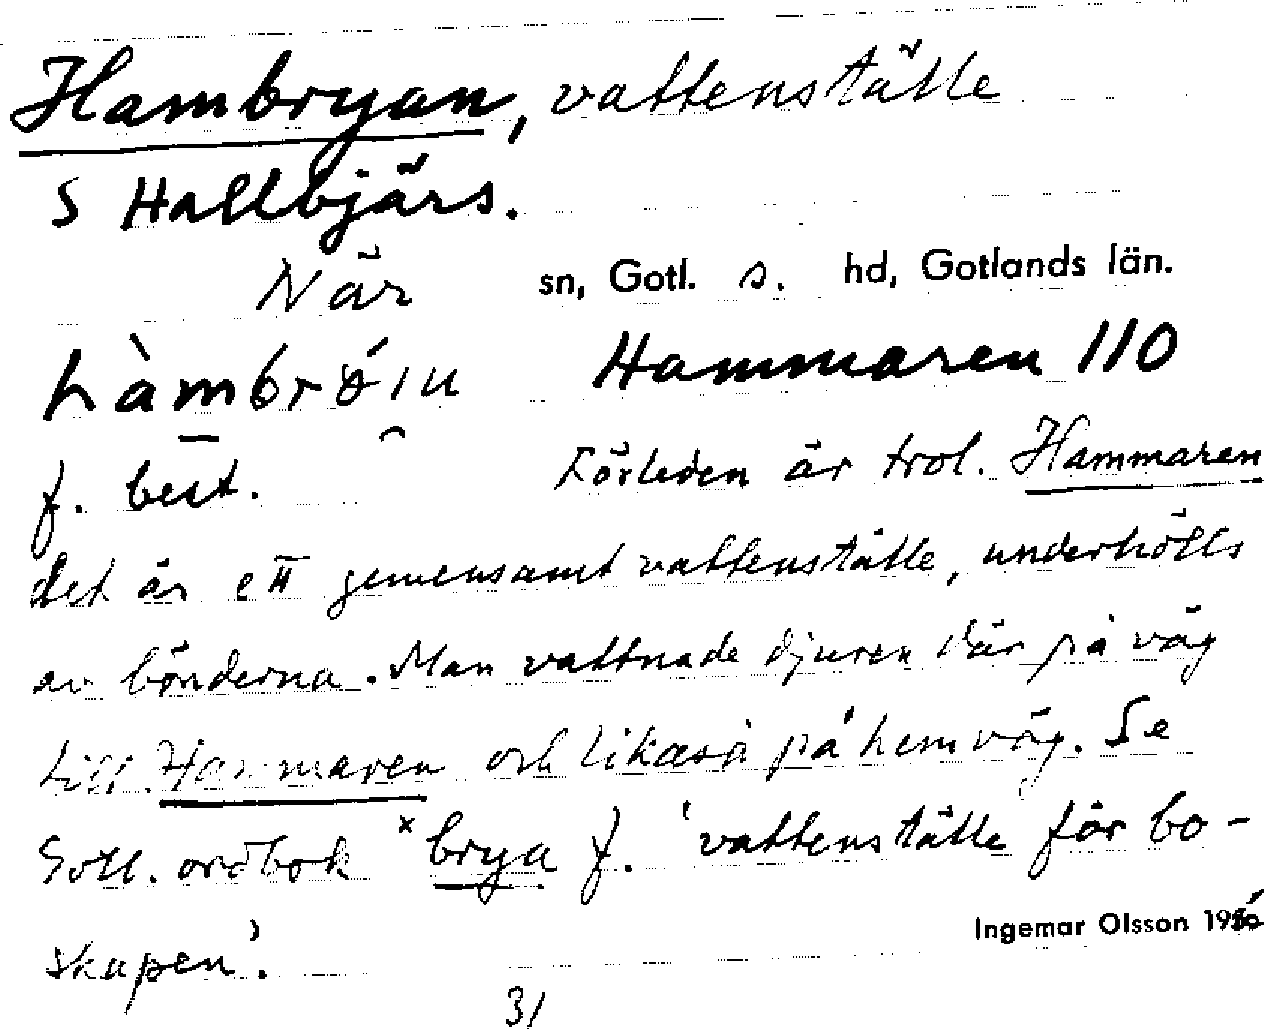 Hambryan, vattenställe
S Hallbjärs.
När sn, Gotl. s. hd, Gotlands län.
Hammaren 110
f. best. Förleden är trol. Hammaren
det är ett gemensamt vattenställe, underhölls
av bönderna. Man vattnade djuren där på väg
till Hammaren och likaså på hemväg. Se
Gotl. ordbok ×brya f. 'vattenställe för bo-
skapen'.
Ingemar Olsson
31